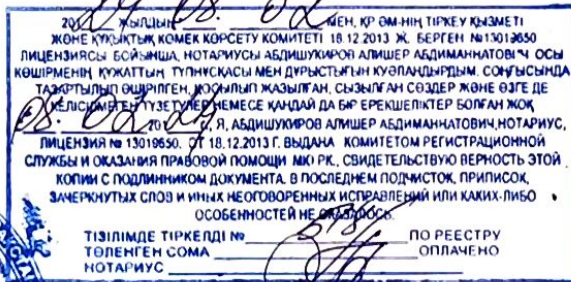 20 24 ЖЫЛДЫҢ 08. 02 МЕН, ҚР ӘМ-НІҢ ТІРКЕУ ҚЫЗМЕТІ
ЖӘНЕ ҚҰҚЫҚТЫҚ КӨМЕК КӨРСЕТУ КОМИТЕТІ 18.12.2013 Ж. БЕРГЕН №13019650
ЛИЦЕНЗИЯСЫ БОЙЫНША, НОТАРИУСЫ АБДИШУКИРОВ АЛИШЕР АБДИМАННАТОВИЧ ОСЫ
КӨШІРМЕНІҢ ҚҰЖАТТЫҢ ТҮПНҰСҚАСЫ МЕН ДҰРЫСТЫҒЫН КУӘЛАНДЫРДЫМ. СОҢҒЫСЫНДА
ТАЗАРТЫЛЫП ӨШІРІЛГЕН, ҚОСЫЛЫП ЖАЗЫЛҒАН, СЫЗЫЛҒАН СӨЗДЕР ЖӘНЕ ӨЗГЕ ДЕ
КЕЛІСІЛМЕГЕН ТҮЗЕТУЛЕР НЕМЕСЕ ҚАНДАЙ ДА БІР ЕРЕКШЕЛІКТЕР БОЛҒАН ЖОҚ
08. 02 20 24 Г., Я, АБДИШУКИРОВ АЛИШЕР АБДИМАННАТОВИЧ, НОТАРИУС,
ЛИЦЕНЗИЯ № 13019650. ОТ 18.12.2013 Г. ВЫДАНА КОМИТЕТОМ РЕГИСТРАЦИОННОЙ
СЛУЖБЫ И ОКАЗАНИЯ ПРАВОВОЙ ПОМОЩИ МЮ РК., СВИДЕТЕЛЬСТВУЮ ВЕРНОСТЬ ЭТОЙ
КОПИИ С ПОДЛИННИКОМ ДОКУМЕНТА. В ПОСЛЕДНЕМ ПОДЧИСТОК, ПРИПИСОК,
ЗАЧЕРКНУТЫХ СЛОВ И ИНЫХ НЕОГОВОРЕННЫХ ИСПРАВЛЕНИЙ ИЛИ КАКИХ-ЛИБО
ОСОБЕННОСТЕЙ НЕ ОКАЗАЛОСЬ.
ТІЗІЛІМДЕ ТІРКЕЛДІ № ПО РЕЕСТРУ
ТӨЛЕНГЕН СОМА ОПЛАЧЕНО
НОТАРИУС